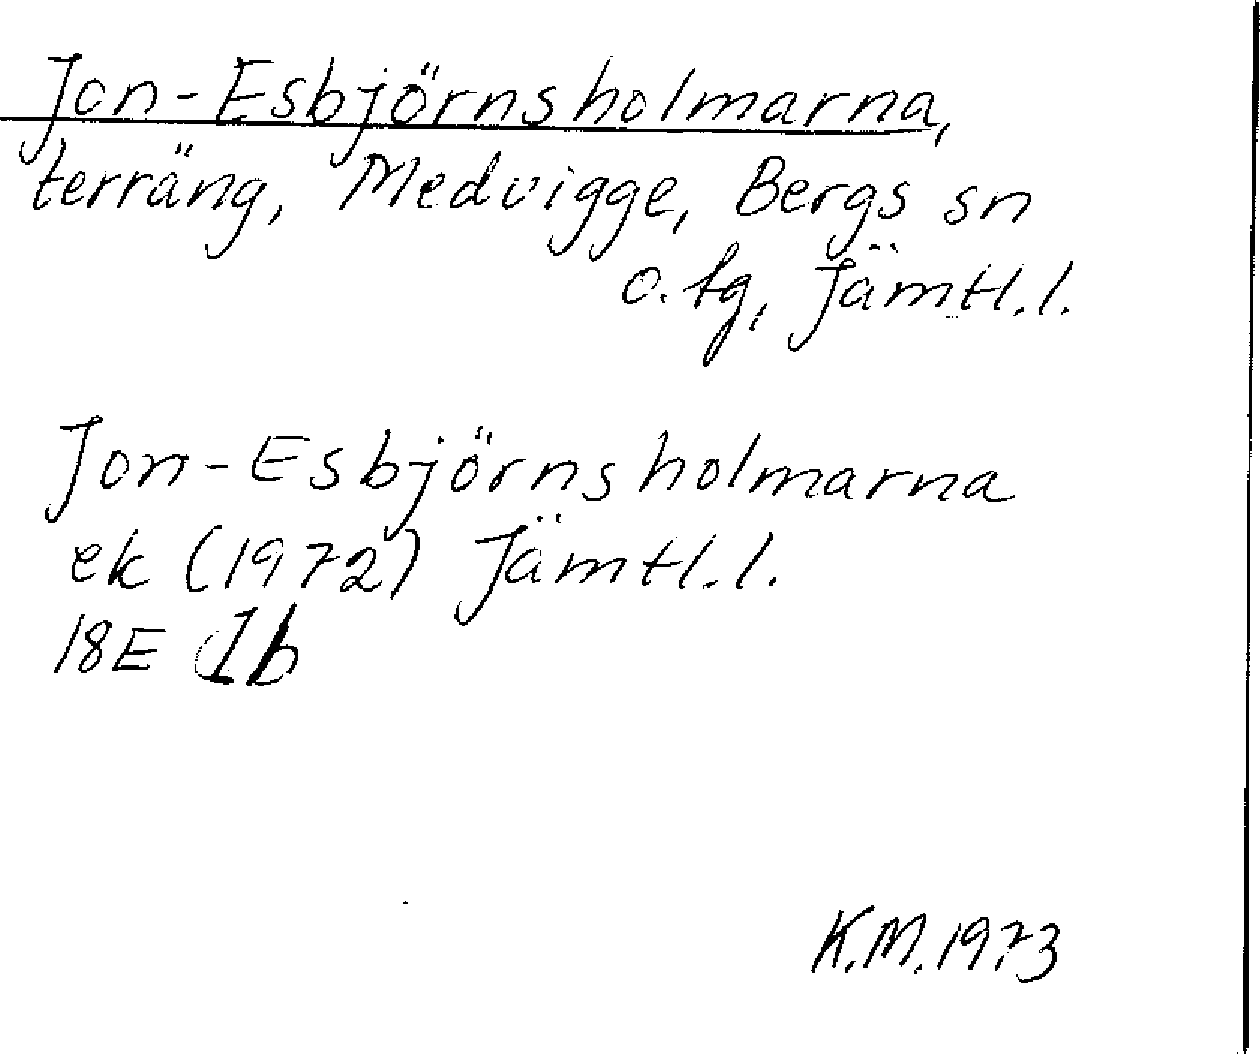 Jon-Esbjörnsholmarna,
terräng, Medvigge, Bergs sn
o. tg, Jämtl.l.
Jon-Esbjörnsholmarna
ek (1972) Jämtl.l.
18E 1b
K.M. 1973